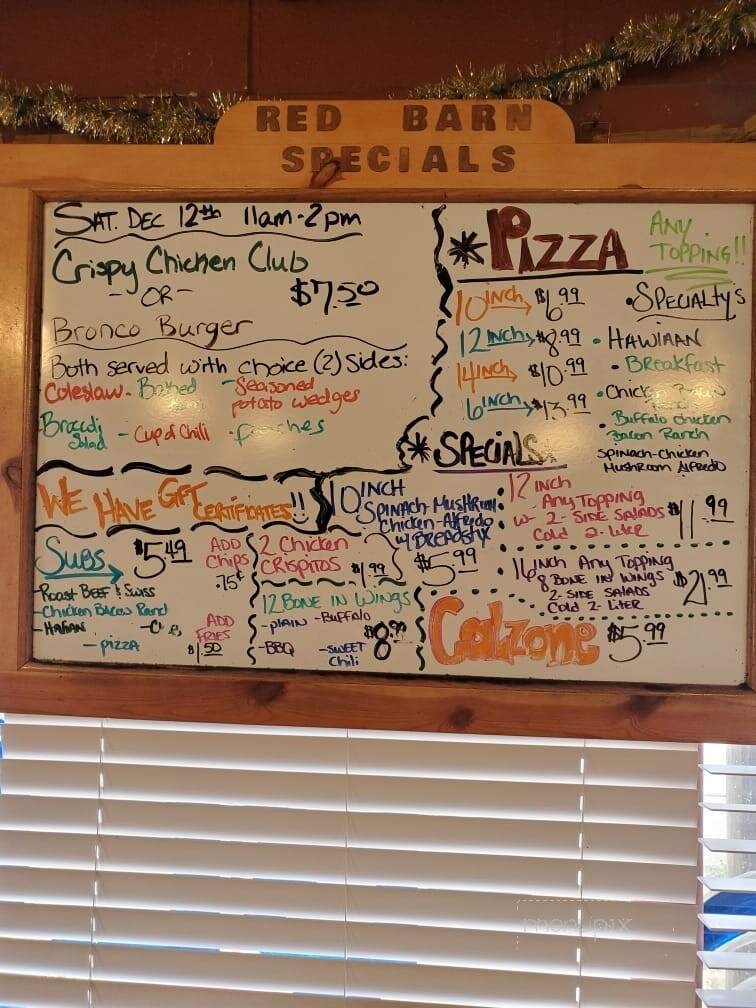 RED BARN
SPECIALS
SAT. DEC 12th 11am-2pm
Crispy Chicken Club
- OR -
$7.50
Bronco Burger
Both served with choice (2) Sides:
Coleslaw - Baked
- Seasoned
potato wedges
- Broccoli
Salad
- Cup of Chili
- peaches
WE HAVE GIFT CERTIFICATES!!
SUBS $5.49
ADD
CHIPS
.75¢
- ROAST BEEF & SWISS
- Chicken Bacon Ranch
- ITALIAN
- pizza
ADD
FRIES
$1.50
2 Chicken
CRISPITOS $1.99
12 BONE IN WINGS
- PLAIN - BUFFALO
- BBQ - SWEET
Chili
10 INCH
SPINACH-MUSHROOM
Chicken-Alfredo
w/ BREADSTIX
$5.99
* PIZZA
ANY
TOPPING!!
10 INCH $6.99
12 INCH $8.99
14 INCH $10.99
16 INCH $13.99
• SPECIALTY'S
• HAWIIAN
• BREAKFAST
• Chicken Bacon
• Buffalo Chicken
Bacon Ranch
SPINACH-CHICKEN
MUSHROOM Alfredo
* SPECIALS *
12 INCH
ANY TOPPING
w- 2- SIDE SALADS
COLD 2-LITER
$11.99
16 INCH ANY TOPPING
8 BONE IN WINGS
2-SIDE SALADS
COLD 2-LITER
$21.99
Calzone $5.99
menupix